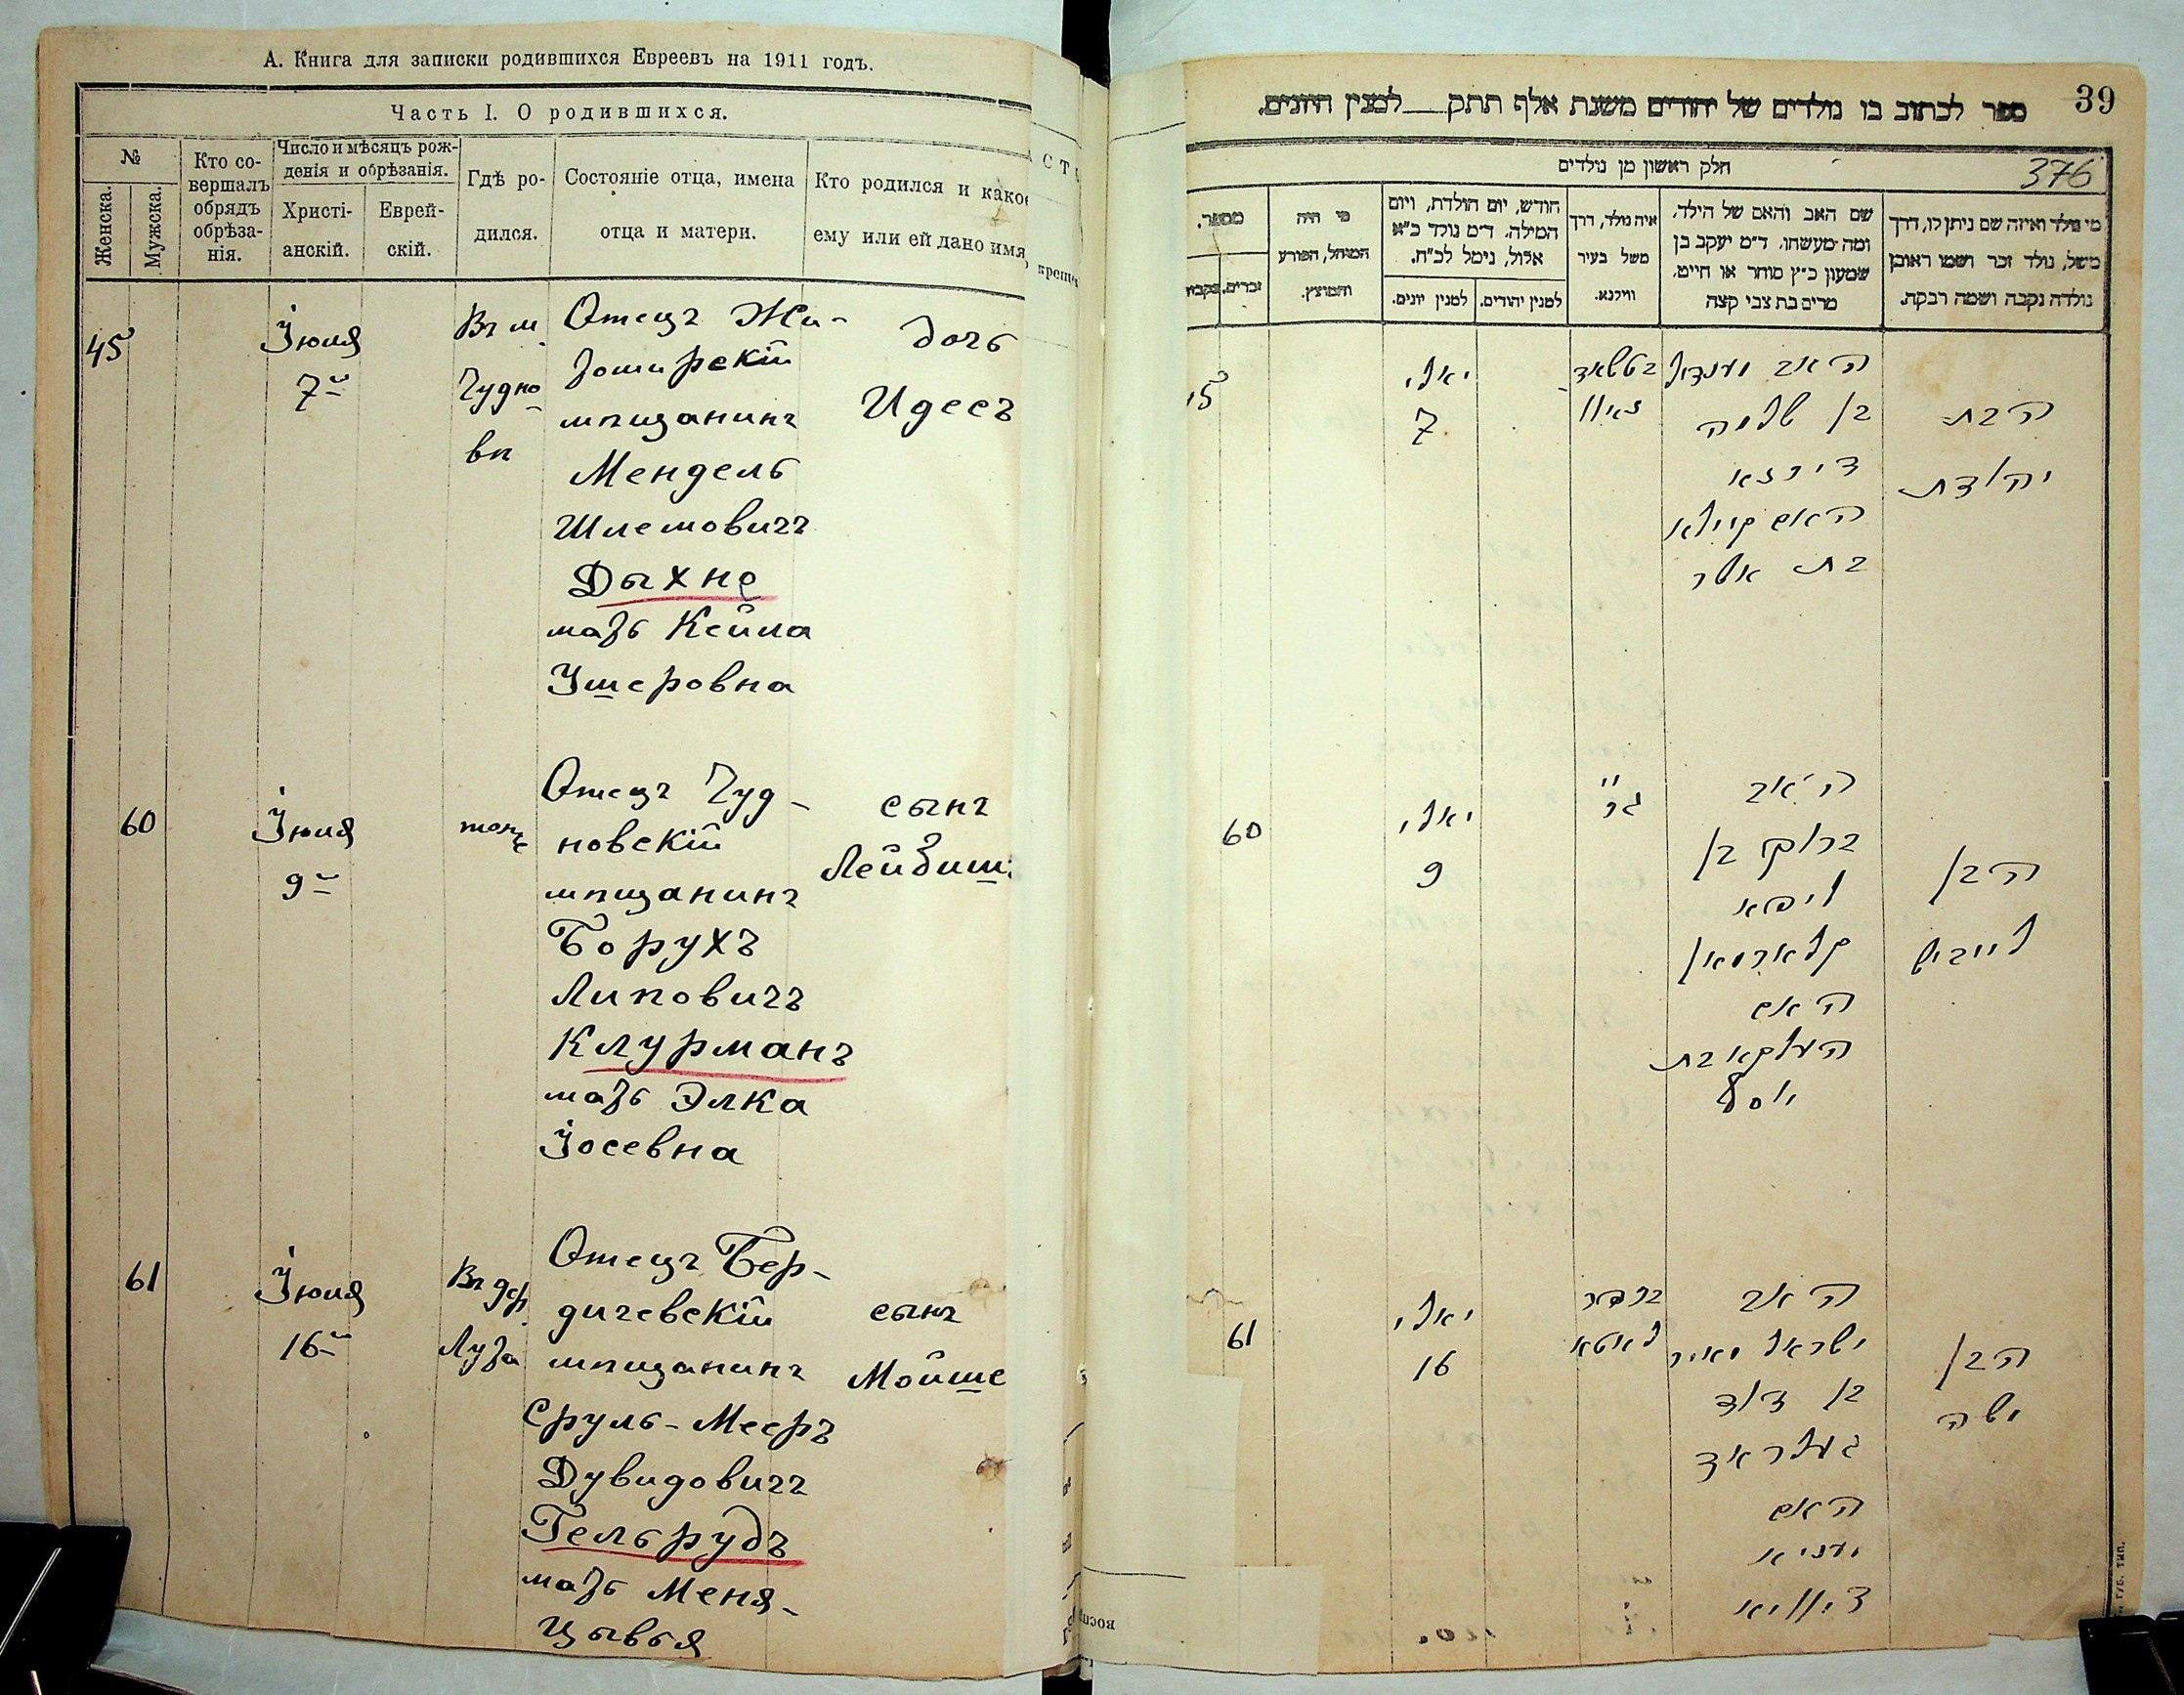 А. Книга для записки родившихся Евреевъ на 1911 годъ.
Часть I. О родившихся.
№
Женска.
Мужска.
Кто со-
вершалъ
обрядъ
обрѣза-
нія.
Число и мѣсяцъ рож-
денія и обрѣзанія.
Христі-
анскій.
Еврей-
скій.
Гдѣ ро-
дился.
Состояніе отца, имена
отца и матери.
Кто родился и какое
ему или ей дано имя
45
Іюля
7го
Въ м.
Чудно-
вѣ
Отецъ Жи-
томирскій
мѣщанинъ
Мендель
Шлемовичъ
Дыхне
мать Кейла
Ушеровна
дочь
Идесъ
60
Іюля
9го
тоже
Отецъ Чуд-
новскій
мѣщанинъ
Борухъ
Липовичъ
Клурманъ
мать Элка
Іосевна
сынъ
Лейбишъ
61
Іюля
16го
Въ дер.
Луза
Отецъ Бер-
дичевскій
мѣщанинъ
Сруль-Мееръ
Дувидовичъ
Гельрудъ
мать Меня-
Цывья
сынъ
Мойше
39
ספר לכתוב בו נולדים של יהודים משנת אלף תתק למנין היונים.
חלק ראשון מן נולדים
376
מי נולד ואיזה שם ניתן לו, דרך
משל, נולד זכר ושמו ראובן
נולדה נקבה ושמה רבקה.
שם האב והאם של הילד,
ומה מעשהו, ד״מ יעקב בן
שמעון כ״ץ סוחר או חייט,
מרים בת צבי קצה
איה נולד, דרך
משל בעיר
ווילנא.
חודש, יום הולדת, ויום
המילה. ד״מ נולד כ״א
אלול, נימל לכ״ח.
למנין יהודים.
למנין יונים.
מי היה
המוהל, הפורע
והמוצץ.
מספר.
זכרים.
הבת
יהודת
האב מענדיל
בן שלמה
האם קיילא
בת אשר
יאלי
7
הבן
לייביש
האב
ברוך בן
ליפא
קלארמאן
האם
העלקא בת
יוסף
יאלי
9
60
הבן
משה
האב
ישראל מאיר
בן דוד
געלראד
האם
מעניא
יאלי
16
61